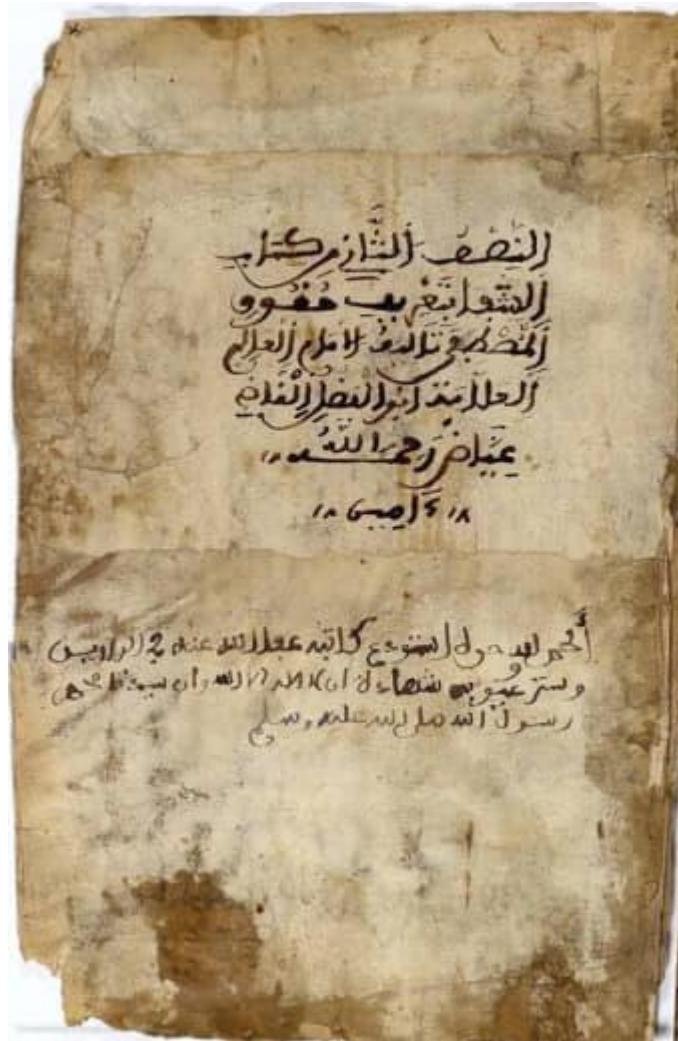 النِّصْفُ الثَّانِي مِن كتاب
الشفا بتعريف حُقُوق
المُصْطَفَى تاليفُ الامام العالِم
العلامة ابو الفضل الْقَاضِ
عِيَاض رَحِمَهُ اللَّهُ
اميـن
الحمد لله كاتبه عفا الله عنه في الدارين
وستر عيوبه شهادة ان لا اله الا الله وان سيدنا محمد
رسول الله صلى الله عليه وسلم